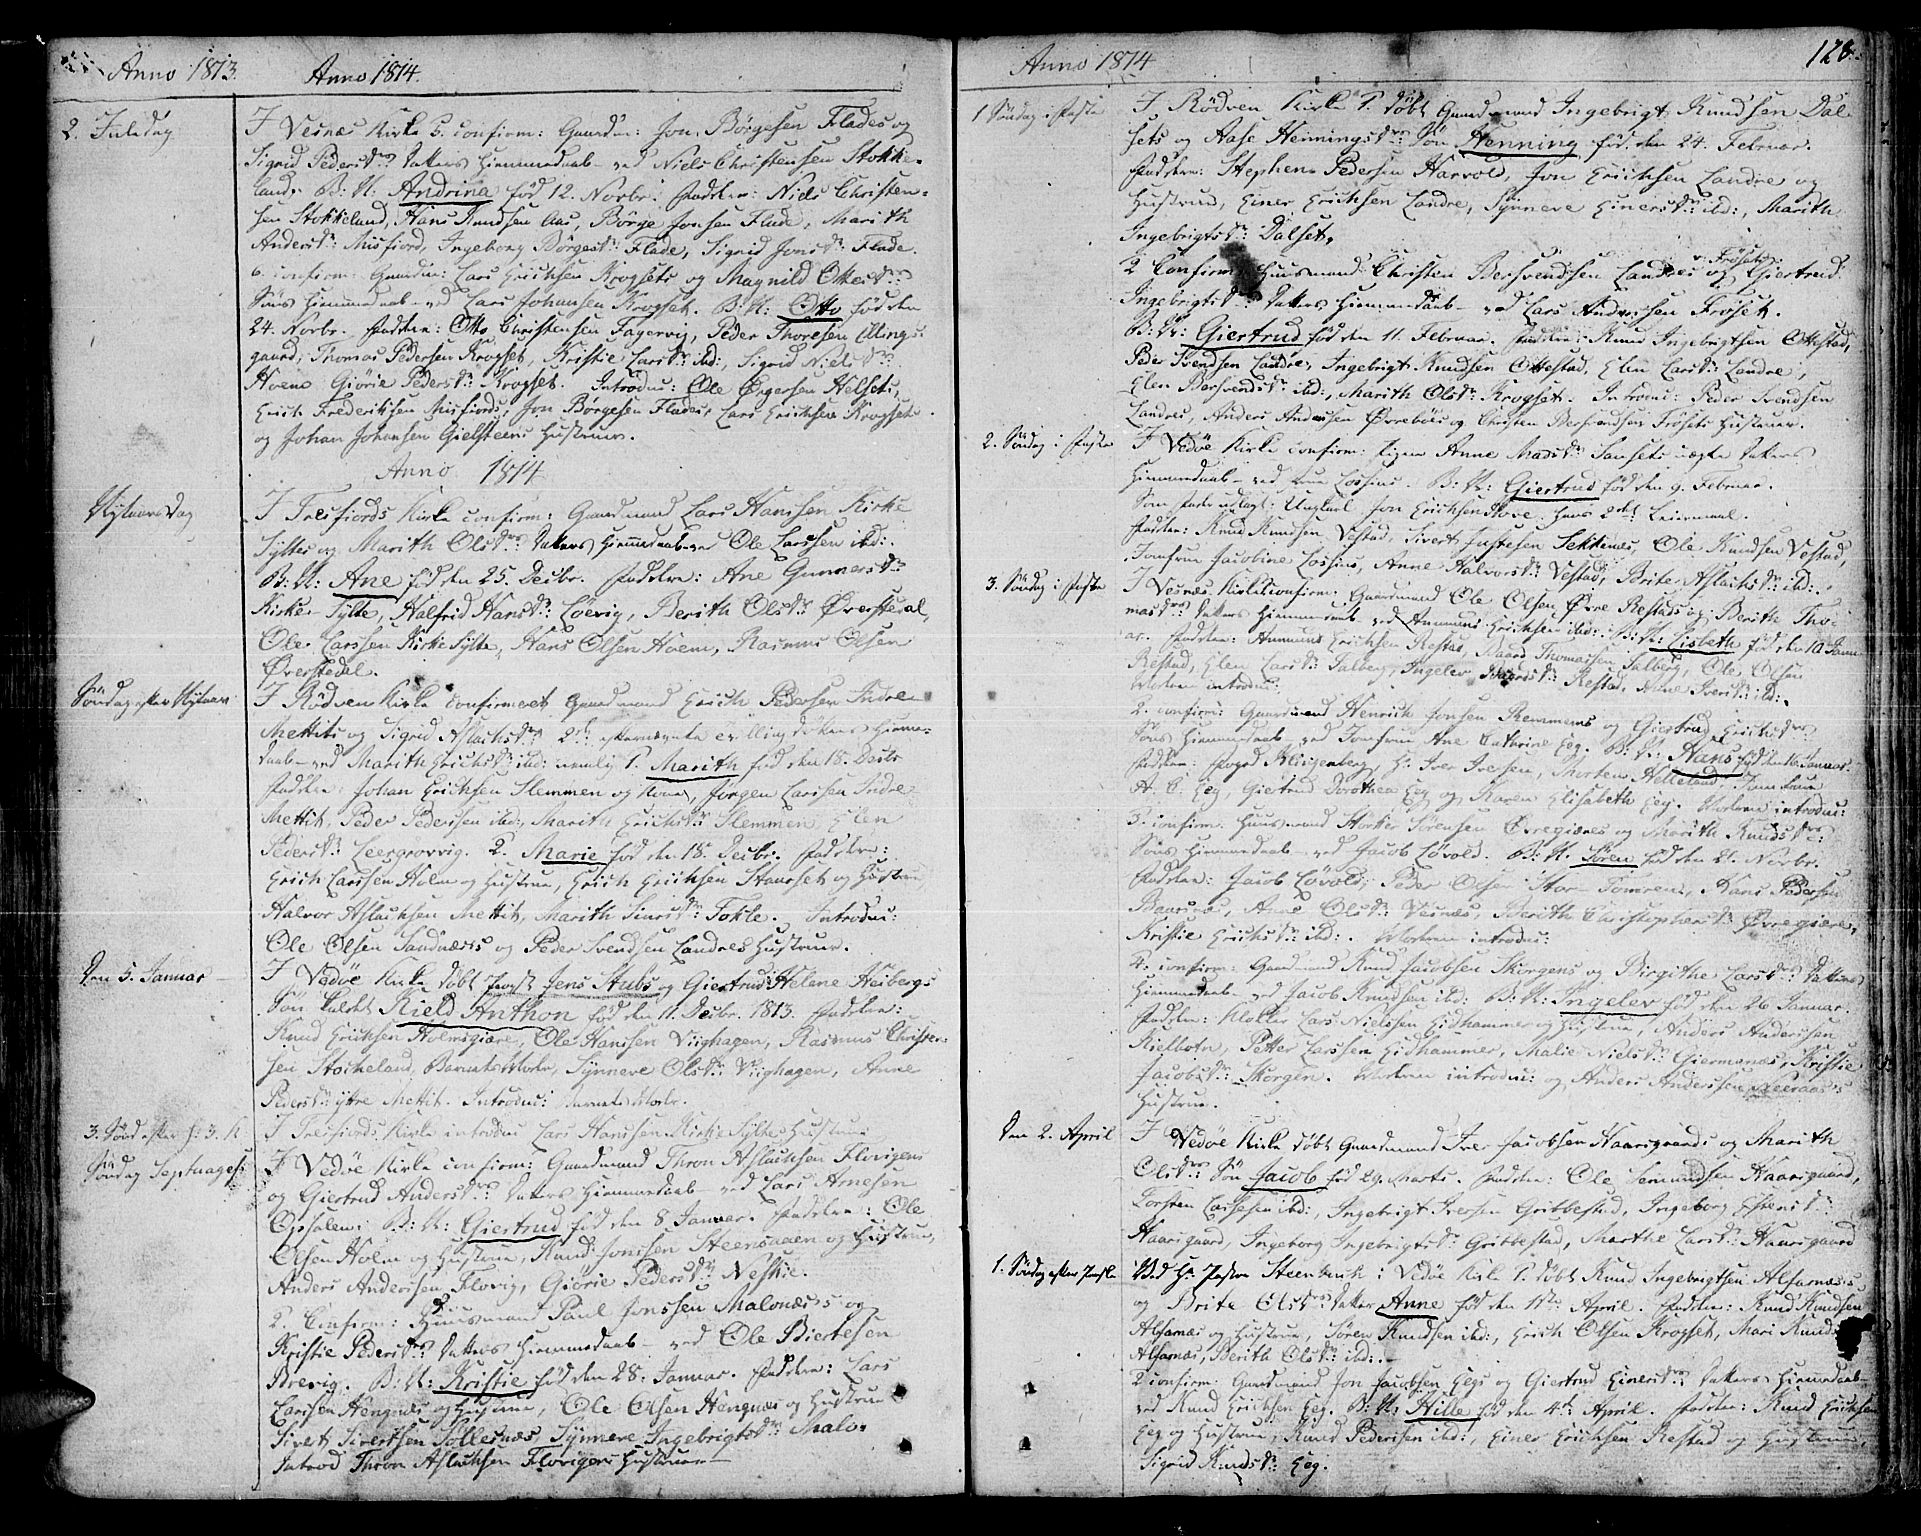 Anno 1813.
Anno 1814.
2. Juledag
I Vesnæs Kirke 5. confirm: Gaardm: Jon Børgesen Flades og
Sigrid Pedersdrs Datters Hiemmedaab ved Niels Christensen Stokke-
land. B: N: Andrina fød 12. Novbr. Faddere: Niels Christen-
sen Stokkeland, Hans Knudsen Aas, Børge Jonsen Flade, Marith
Andersdr Misfiord, Ingeborg Børgesdr Flade, Sigrid Jonsdr Flade.
6. confirm: Gaardm: Lars Erichsen Krogsets og Magnild Ottesdrs
Søns Hiemmedaab ved Lars Johansen Krogset. B: N: Otto fød den
24. Novbr. Faddere: Otto Christensen Fagervig, Peder Thoresen Villings-
gaard, Thomas Pedersen Krogset, Kristie Larsdr ibd:, Sigrid Nielsdr
Hoem Giørie Pedersdr Krogset. Introdu: Ole Øngersen Helsets,
Erich Frederiksen Misfiords, Jon Børgesen Flades, Lars Erichsen Krogsets
og Johan Johansen Gielsteens Hustruer.
Anno 1814
Nytaarsdag
I Tresfiords Kirke confirm: Gaardmand Lars Hanssen Kirke
Syltes og Marith Olsdrs Datters Hiemmedaab ved Ole Larssen ibd:
B: N: Ane fød den 25. Decbr. Faddere: Ane Gunnersdr
Kirke Sylte, Halfrid Hansdr Løevig, Berith Olsdr Øverstedal,
Ole Larssen Kirke Sylte, Hans Olsen Hoem, Rasmus Olsen
Øverstedal.
Søndag efter Nytaar
I Rødven Kirke confirmeret Gaardmand Erich Pedersen Indre
Mettits og Sigrid Aslachsdrs 2de efternævnte Tvillingdøttres Hiemme-
daab ved Marith Erichsdr ibd: nemlig 1. Marith fød den 18. Decbr
Faddere: Johan Erichsen Slemmen og Kone, Jørgen Larssen Indre
Mettit, Peder Pedersen ibd:, Marith Erichsdr Slemmen, Elen
Pedersdr Leergrovvig. 2. Marie fød den 18. Decbr. Faddere:
Erich Larssen Holm og Hustrue, Erich Erichsen Staurset og Hustrue,
Halvor Aslachsen Mettit, Marith Simsdr Tokle. Introdu:
Ole Olsen Sandnæs's og Peder Svendsen Landres Hustruer.
Den 5. Januar
I Vedøe Kirke døbt Provst Jens Stubs og Giertrud Helene Heibergs
Søn kaldet Kield Anthon fød den 11. Decbr. 1813. Faddere:
Knud Erichsen Holmsgiære, Ole Hanssen Viighagen, Rasmus Christen-
sen Stockeland, Barnets Moder, Synneve Olsdr Viighagen, Anne
Pedersdr ÿttre Mettit. Introdu: Barnets Moder.
3. Sønd efter H: 3. K
I Tresfiords Kirke introdu Lars Hanssen Kirke Syltes Hustrue
Søndag Septuages:
I Vedøe Kirke confirm: Gaardmand Thron Aslachsen Flovigens
og Giertrud Andersdrs Datters Hiemmedaab ved Lars Arnesen
Opsalen. B: N: Giertrud fød den 8 Januar. Faddere: Ole
Olsen Holm og Hustrue, Knud Jonsen Steensaaen og Hustrue,
Anders Andersen Flovig, Giørie Pedersdr Neskie.
2. Confirm: Huusmand Paul Jonssen Malonæs's og
Kristie Pedersdrs Datters Hiemmedaab ved Ole Biertesen
Brevig. B: N: Kristie fød den 28. Januar. Faddere: Lars
Larssen Hengnæs og Hustrue, Ole Olsen Hengnæs og Hustrue
Sivert Sivertsen Søllesnæs, Synnere Ingebrigtsdr Malo-
Introd Thron Aslachsen Flovigens Hustrue
Anno 1814
128.
1 Søndag i Faste
I Rødven Kirke 1. døbt Gaardmand Ingebrigt Knudsen Dal-
sets og Aase Henningsdrs Søn Henning fød den 24. Februar.
Faddere: Stephen Pedersen Harvold, Jon Erichsen Landre og
Hustrue, Einer Erichsen Landre, Synneve Einersdr ibd:, Marith
Ingebrigtsdr Dalset.
v. Frøset
2 Confirm: Huusmand Christen Bersvendsen Landres og Giertrud
Ingebrigtsdrs Datters Hiemmedaab ved Lars Andersen Frøset.
B: N: Giertrud fød den 11. Februar. Faddere: Knud Ingebrigtsen Ottestad,
Peder Svendsen Landre, Ingebrigt Knudsen Ottestad, Elen Larsdr Landre,
Elen Bersvendsdr ibd:, Marith Olsdr Krogset. Introdu: Peder Svendsen
Landres, Anders Andersen Øvrebøes og Christen Bersvendsen Frøsets Hustruer.
2. Søndag i Faste
I Vedøe Kirke confirm: Pigen Anne Madsdr Sansets uægte Datters
Hiemmedaab ved Lossius. B: N: Giertrud fød den 9. Februar.
Som Fader udlagt: Unkarl Jon Erichsen Hove hans 2det Leiermaal.
Faddere: Knud Knudsen Vestad, Sivert Justesen Sekkenæs, Ole Knudsen Vestad,
Jomfrue Jacobine Lossius, Anne Halvorsdr Vestad, Brite Aslachsdr ibd:.
3. Søndag i Faste
I Vesnæs Kirke 1. confirm: Gaardmand Ole Olsen Øvre Restads og Berith Tho-
masdrs Datters Hiemmedaab ved Ammuns Erichsen ibd: B: N: Lisbeth fød den 10 Janu-
ar. Faddere: Ammuns Erichsen Restad, Baard Thomassen Salberg, Ole Olsen
Restad, Elen Larsdr Salberg, Ingelev Baardsdr Restad, Anne Iversdr ibd:.
Moderen introdu:
2. confirm: Gaardmand Henrich Jonsen Remmems og Giertrud Erichsdrs
Søns Hiemmedaab ved Jomfrue Ane Catrine Eeg. B: N: Hans fød den 16 Januar.
Faddere: Foged Klingenberg, Hr Iver Iversen, Morten Hilleland, Jomfrue
A. C. Eeg, Giertrud Dorothea Eeg og Karen Elisabeth Eeg. Moderen introdu:
3. confirm. Huusmand Størker Sørensen Øvregiæres og Marith Knudsdrs
Søns Hiemmedaab ved Jacob Løvold. B: N: Søren fød den 21. Novbr.
Faddere: Jacob Løvold, Peder Olsen Stor-Tomren, Hans Pedersen
Baarsnæs, Anne Olsdr Vesnæs, Berith Christophersdr Øvregiære,
Kristie Erichsdr ibd:. Moderen introdu:
4. confirm: Gaardmand Knud Jacobsen Skorgens og Birgithe Larsdrs Datters
Hiemmedaab ved Jacob Knudsen ibd: B: N: Ingelev fød den 26 Januar.
Faddere: Klokker Lars Nielsen Eidhammer og Hustrue, Anders Andersen
Kielbotn, Petter Larssen Eidhammer, Malie Nielsdr Giermanæs, Kristie
Jacobsdr Skorgen. Moderen introdu: og Anders Anderssen Neeraas's
Hustrue.
Den 2. April
I Vedøe Kirke døbt Gaardmand Iver Jacobsen Haarsgaards og Marith
Olsdrs Søn Jacob fød 29. Marts. Faddere: Ole Semundsen Haarsgaard,
Torsten Larssen ibd:, Ingebrigt Iversen Gribbestad, Ingeborg Estensdr
Haarsgaard, Ingeborg Ingebrigtsdr Gribbestad, Marthe Larsdr Haarsgaard
1. Søndag efter Paaske
Ved Hr Pastor Steenbuch i Vedøe Kirke 1. døbt Knud Ingebrigtsen Alfarnæs's
og Brite Olsdrs Datter Anne fød den 11te April. Faddere: Knud Knudsen
Alfarnæs og Hustrue, Søren Knudsen ibd:, Erich Olsen Krogset, Mari Knudsdr
Alfarnæs, Berith Olsdr ibd:.
2 confirm: Gaardmand Jon Jacobsen Eegs og Giertrud Einersdrs Datters Hiemmedaab
ved Knud Erichsen Eeg. B: N: Hille fød den 4de April. Faddere: Knud Erichsen
Eeg og Hustrue, Knud Pedersen ibd:, Einer Erichsen Restad og Hustrue,
Sigrid Knudsdr Eeg.